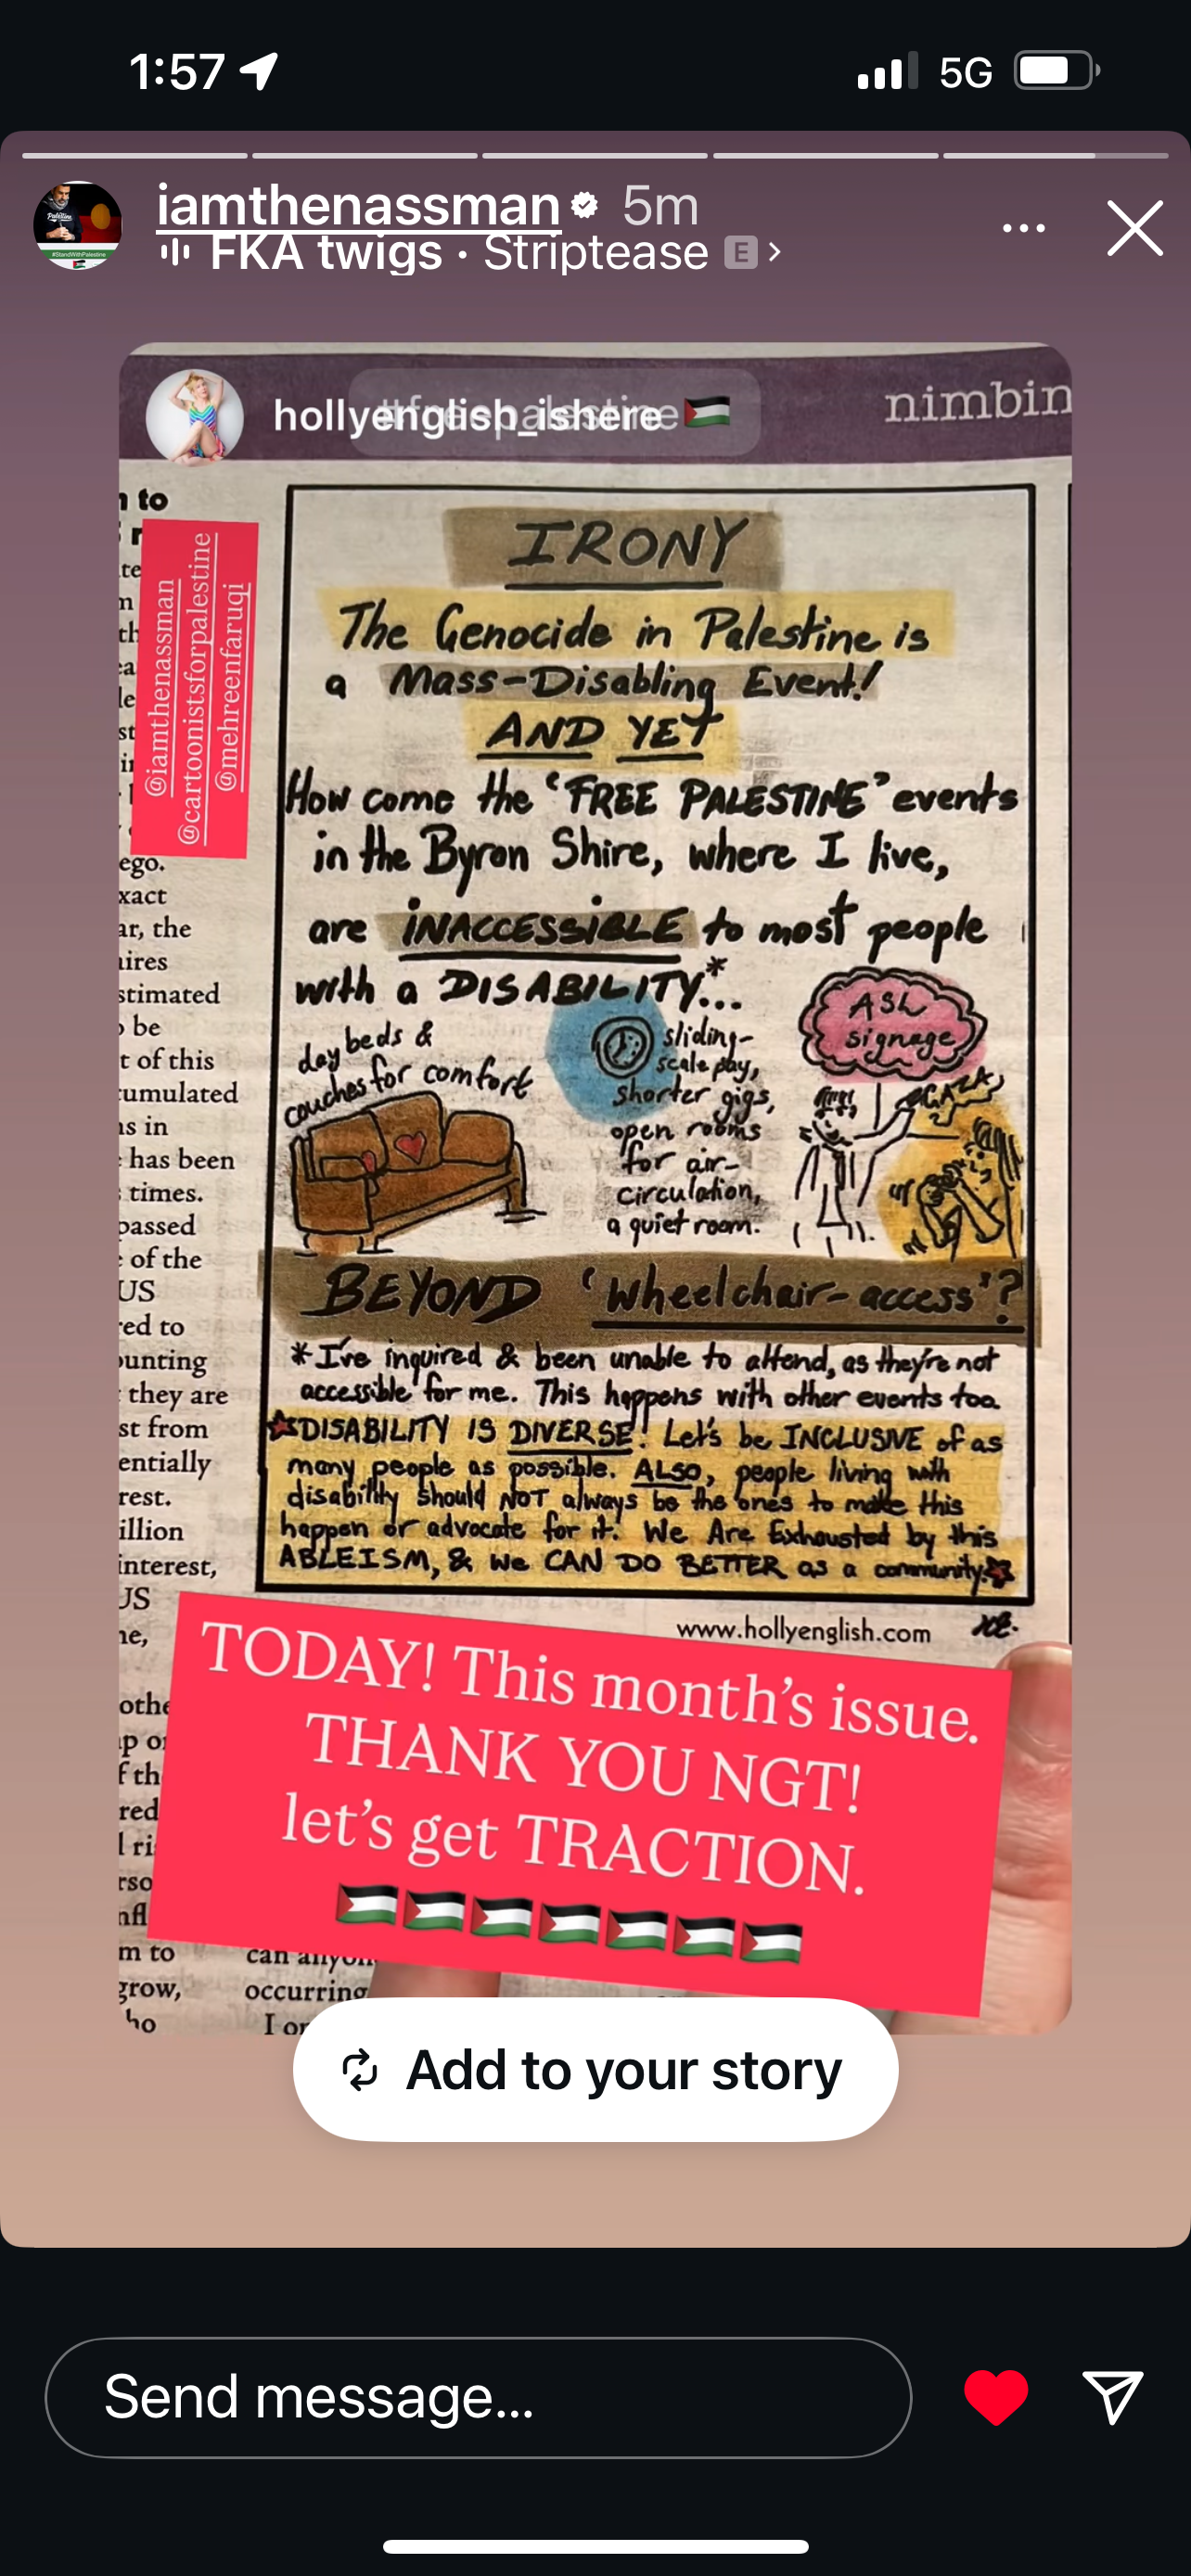 1:57
5G
iamthenassman 5m
FKA twigs · Striptease E
hollyenglish_ishere
#freepalestine 🇵🇸
nimbin
@iamthenassman
@cartoonistsforpalestine
@mehreenfaruqi
IRONY
The Genocide in Palestine is
a Mass-Disabling Event!
AND YET
How come the 'FREE PALESTINE' events
in the Byron Shire, where I live,
are INACCESSIBLE to most people
with a DISABILITY*...
day beds &
couches for comfort
sliding-
scale pay,
shorter gigs,
open rooms
for air-
circulation,
a quiet room.
ASL
signage
GAZA
BEYOND 'wheelchair-access'?
*I've inquired & been unable to attend, as they're not
accessible for me. This happens with other events too.
DISABILITY IS DIVERSE! Let's be INCLUSIVE of as
many people as possible. ALSO, people living with
disability should NOT always be the ones to make this
happen or advocate for it! We Are Exhausted by this
ABLEISM, & We CAN DO BETTER as a community.
www.hollyenglish.com
to
ego.
xact
ar, the
aires
stimated
be
t of this
cumulated
ns in
has been
times.
passed
of the
US
red to
ounting
they are
st from
entially
rest.
illion
interest,
US
ne,
m to
grow,
can
occurring
I
TODAY! This month's issue.
THANK YOU NGT!
let's get TRACTION.
🇵🇸🇵🇸🇵🇸🇵🇸🇵🇸🇵🇸🇵🇸
Add to your story
Send message...